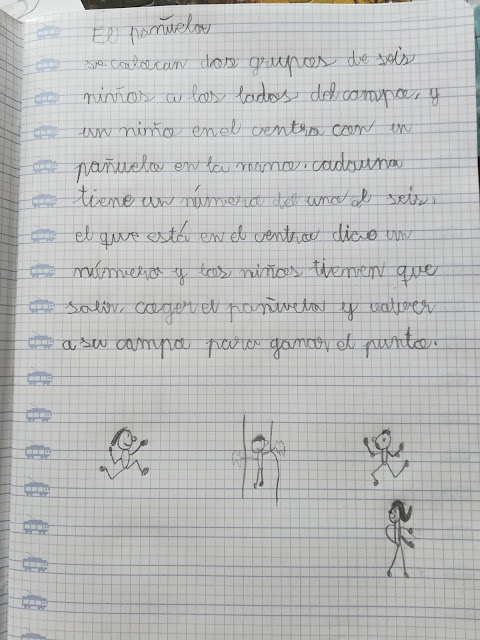 El pañuelo
se colocan dos grupos de seis
niños a los lados del campo, y
un niño en el centro con un
pañuelo en la mano. cada uno
tiene un número del uno al seis.
el que está en el centro dice un
número y los niños tienen que
salir, coger el pañuelo y volver
a su campo para ganar el punto.